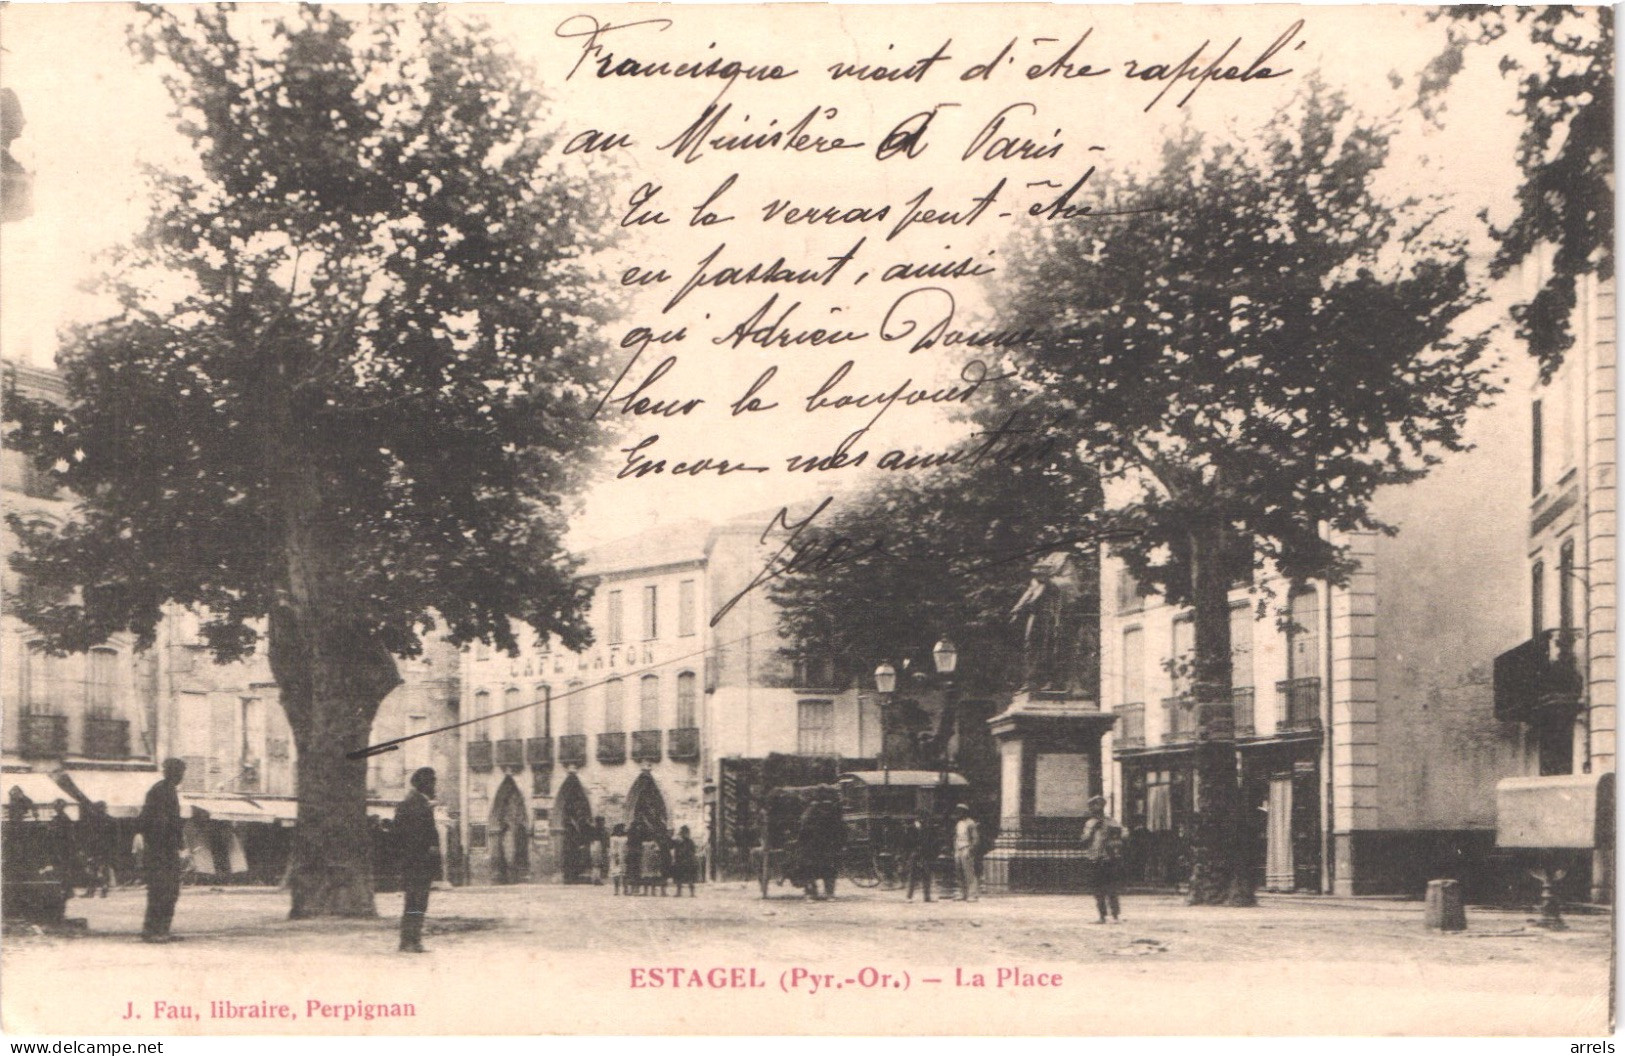 Francisque vient d'être rappelé
au Ministère à Paris -
Tu le verras peut-être
en passant, ainsi
qu'Adrien Donne
leur le bonjour
Encore mes amitiés
CAFÉ LAFON
ESTAGEL (Pyr.-Or.) — La Place
J. Fau, libraire, Perpignan
delcampe.net
arrels